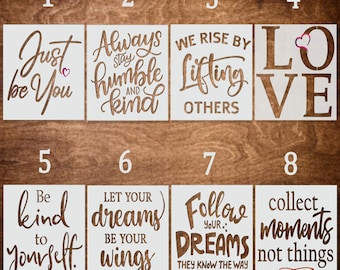 1 2 3 4
Just
be You
Always
stay
humble
AND
kind
WE RISE BY
Lifting
OTHERS
LO
VE
5 6 7 8
Be
kind
to
yourself.
LET YOUR
dreams
BE YOUR
wings
Follow
YOUR
DREAMS
THEY KNOW THE WAY
collect
moments
not things